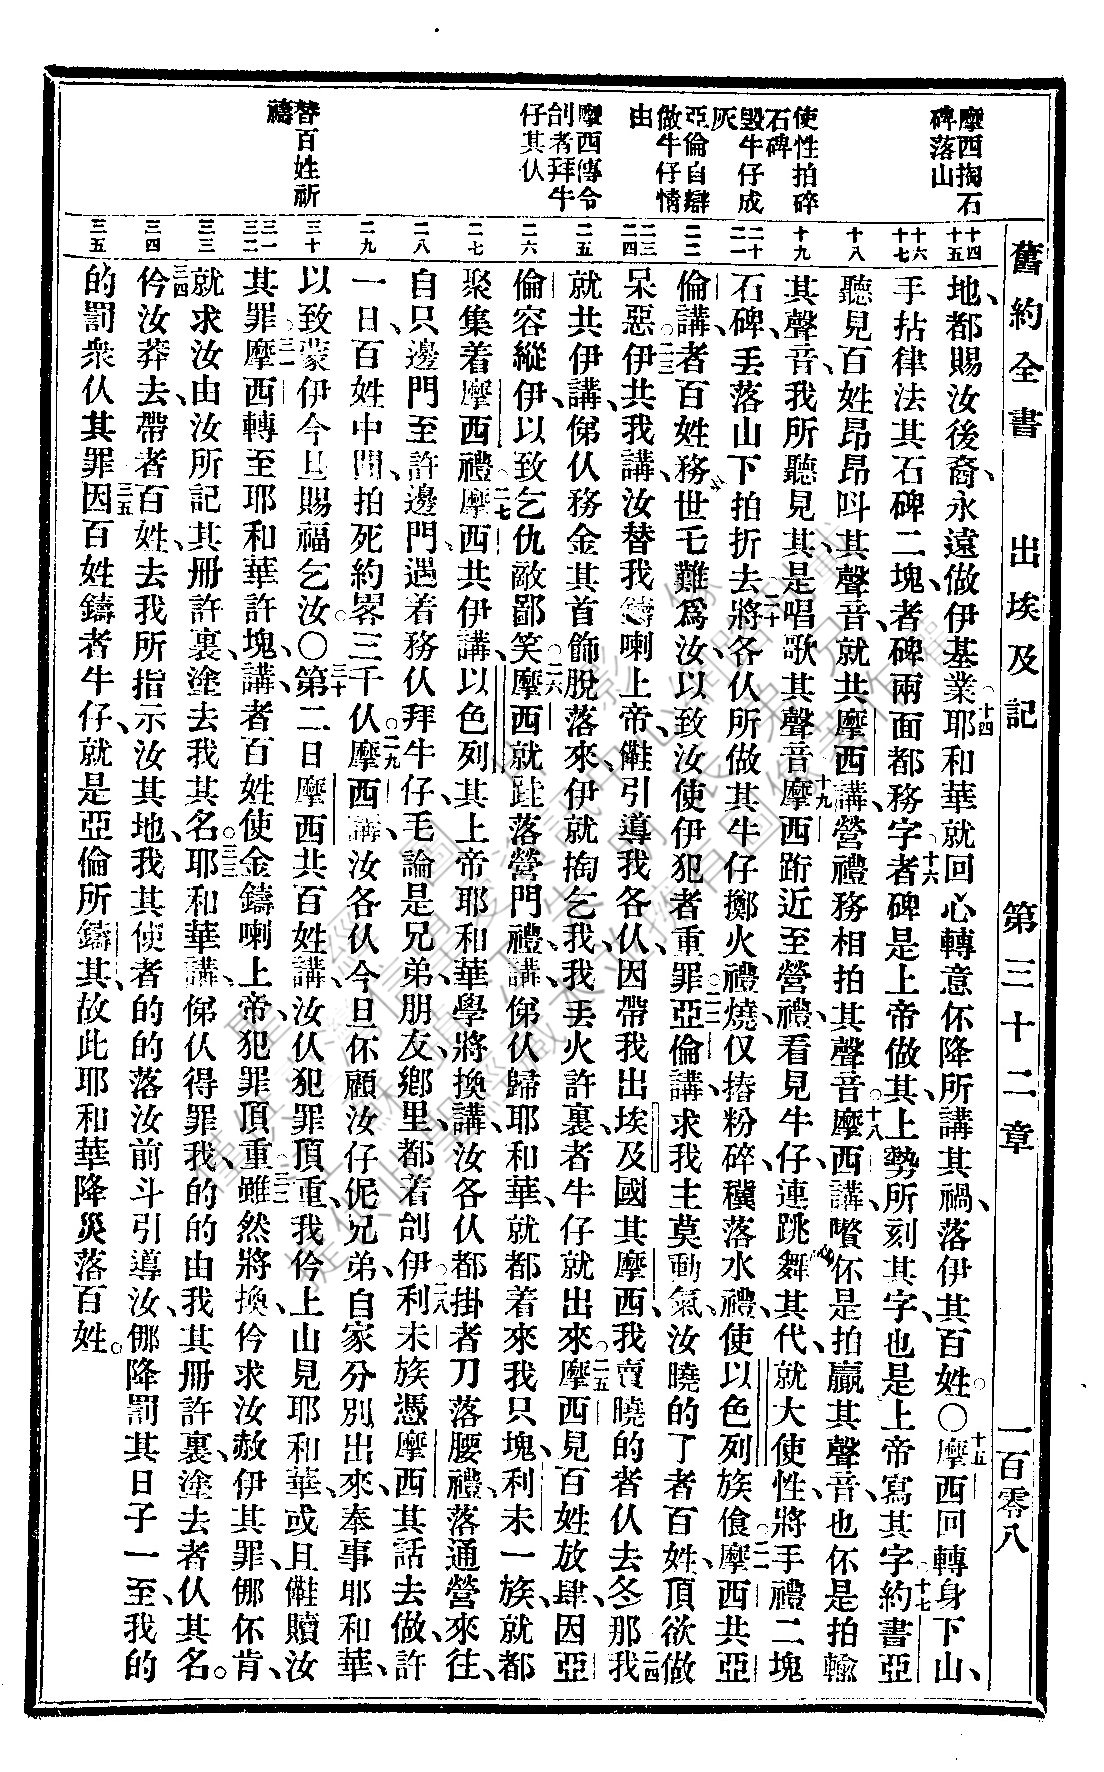 舊約全書 出埃及記 第三十二章 一百零八
摩西掏石
碑落山
使性拍碎
石碑
毀牛仔成
灰
亞倫自辯
做牛仔情
由
摩西傳令
刣者拜牛
仔其仈
替百姓祈
禱
十四
十五
十六
十七
十八
十九
二十
二一
二二
二三
二四
二五
二六
二七
二八
二九
三十
三一
三二
三三
三四
三五
地、都賜汝後裔、永遠做伊基業。十四耶和華就回心轉意伓降所講其禍、落伊其百姓。〇十五摩西回轉身下山、
手拈律法其石碑二塊、者碑兩面都務字。十六者碑是上帝做其、上勢所刻其字、也是上帝寫其字。十七約書亞
聽見百姓昂昂呌其聲音、就共摩西講、營禮務相拍其聲音。十八摩西講、贊伓是拍贏其聲音、也伓是拍輸
其聲音、我所聽見其、是唱歌其聲音。十九摩西跡近至營禮、看見牛仔、連跳舞其代、就大使性、將手禮二塊
石碑、丟落山下拍折去。二十將各仈所做其牛仔擲火禮燒、仅摏粉碎、穬落水禮、使以色列族飲。二一摩西共亞
倫講、者百姓務世乇難爲汝、以致汝使伊犯者重罪。二二亞倫講、求我主莫動氣、汝曉的了者百姓、頂欲做
呆惡。二三伊共我講、汝替我鑄喇上帝、儺引導我各仈、因帶我出埃及國其摩西、我賣曉的者仈去冬那。二四我
就共伊講、俤仈務金其首飾脫落來、伊就掏乞我、我丟火許裏、者牛仔就出來。二五摩西見百姓放肆、因亞
倫容縱伊、以致乞仇敵鄙笑。二六摩西就跬落營門禮、講、俤仈歸耶和華、就都着來我只塊、利未一族、就都
聚集着摩西禮。二七摩西共伊講、以色列其上帝耶和華、學將換講、汝各仈都掛者刀落腰禮、落通營來往、
自只邊門至許邊門、遇着務仈拜牛仔、毛論是兄弟、朋友、鄕里、都着刣伊。二八利未族憑摩西其話去做、許
一日、百姓中間、拍死約畧三千仈。二九摩西講、汝各仈今旦伓顧汝仔伲兄弟、自家分別出來、奉事耶和華、
以致蒙伊今旦賜福乞汝。〇三十第二日摩西共百姓講、汝仈犯罪頂重、我伶上山見耶和華、或且儺贖汝
其罪。三一摩西轉至耶和華許塊、講、者百姓使金鑄喇上帝、犯罪頂重。三二雖然將換、伶求汝赦伊其罪、㑚伓肯、
就求汝由汝所記其册許裏、塗去我其名。三三耶和華講、俤仈得罪我、的的由我其册許裏、塗去者仈其名。
三四伶汝莽去、帶者百姓、去我所指示汝其地、我其使者的的落汝前斗引導汝、㑚降罰其日子一至、我的
的罰衆仈其罪。三五因百姓鑄者牛仔、就是亞倫所鑄其、故此耶和華降災落百姓。